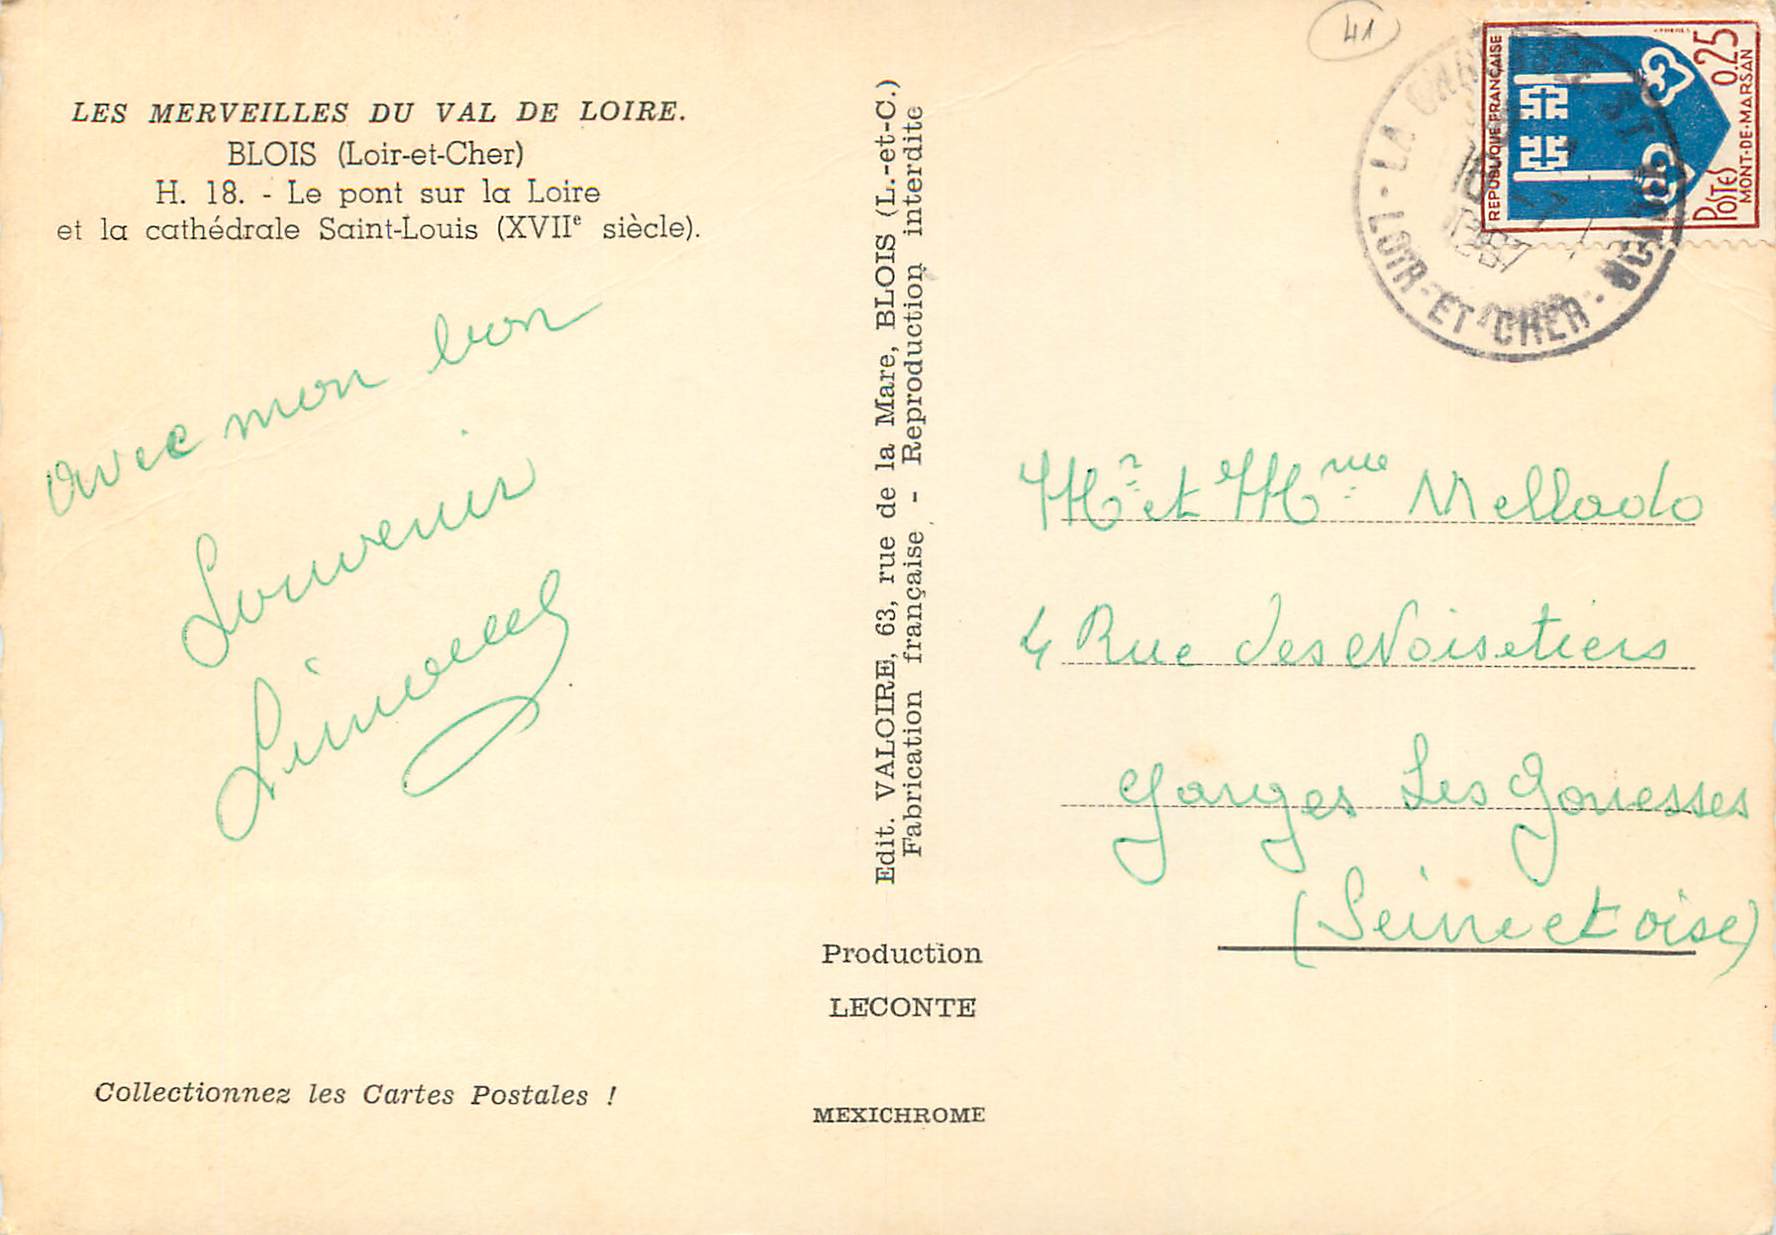 LES MERVEILLES DU VAL DE LOIRE.
BLOIS (Loir-et-Cher)
H. 18. - Le pont sur la Loire
et la cathédrale Saint-Louis (XVIIe siècle).
avec mon bon
Souvenir
Collectionnez les Cartes Postales !
Edit. VALOIRE, 63, rue de la Mare, BLOIS (L.-et-C.)
Fabrication française - Reproduction interdite
Production
LECONTE
MEXICHROME
41
REPUBLIQUE FRANÇAISE
0,25
POSTES
MONT-DE-MARSAN
LA ST
LOIR-ET-CHER
Mr et Mme Mellado
4 Rue des Noisetiers
Garges Les Gonesses
(Seine et oise)